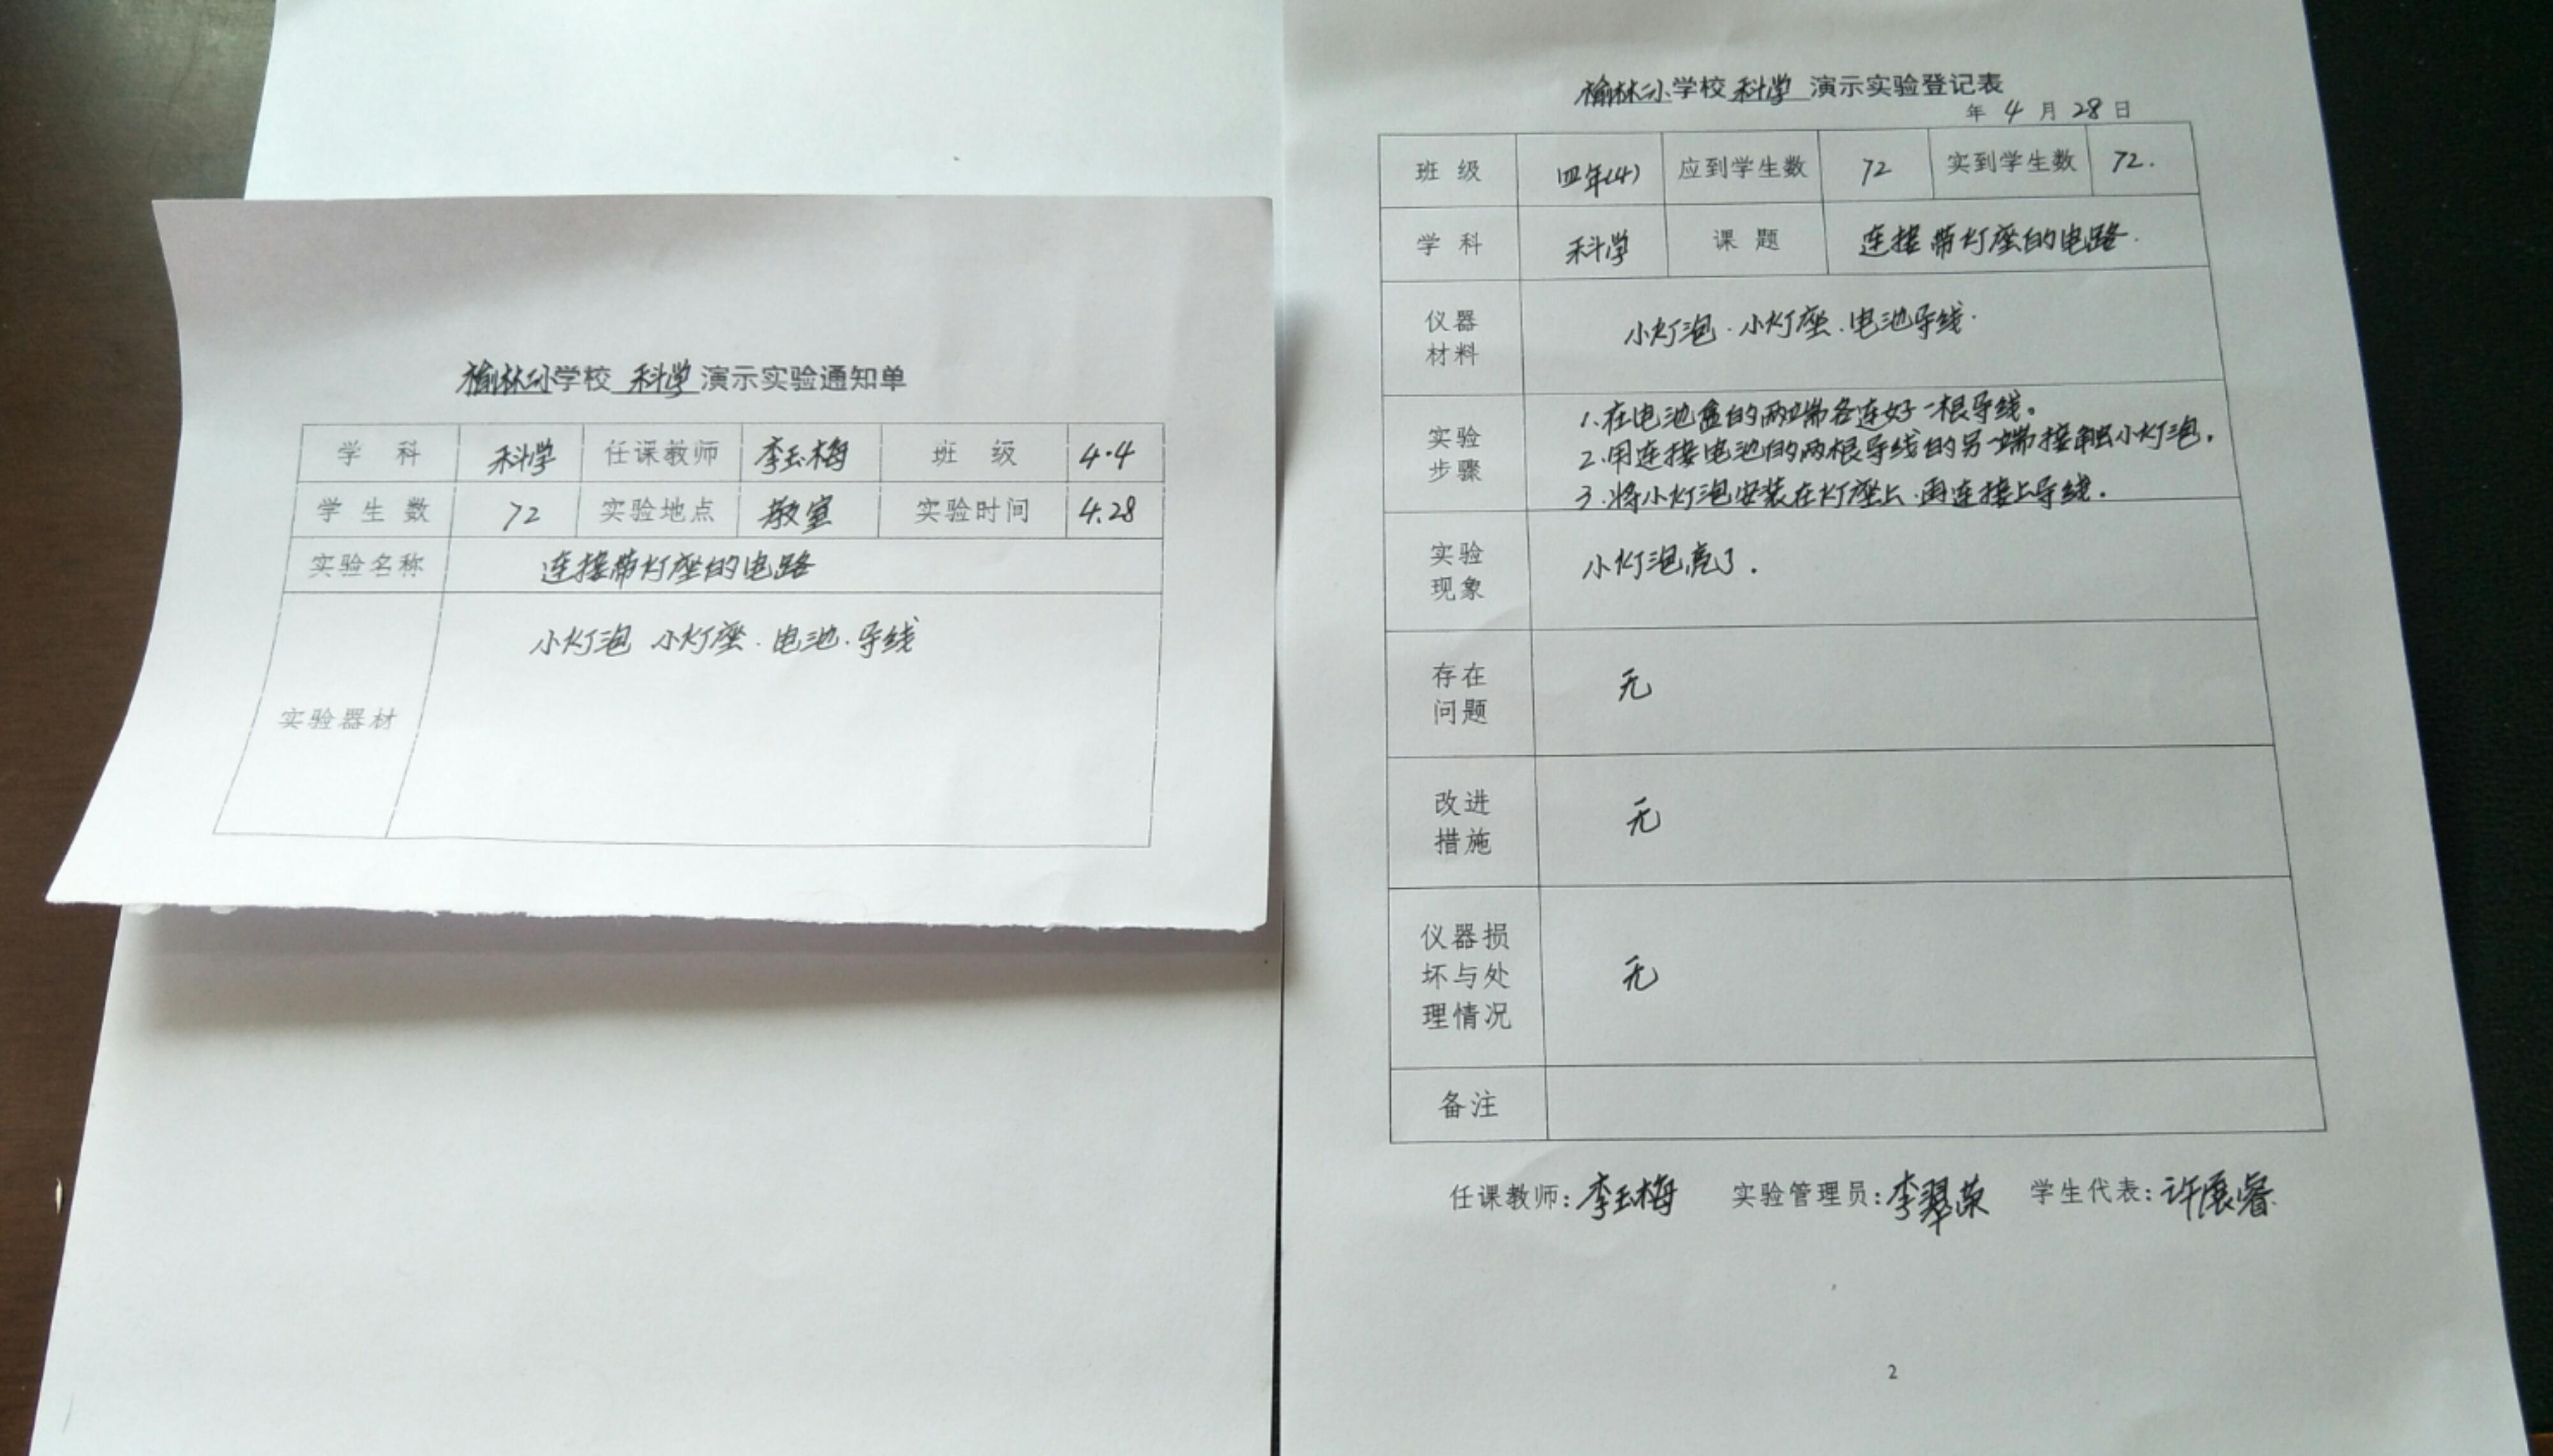 榆林小学校 科学 演示实验通知单
学 科 科学 任课教师 李玉梅 班 级 4.4
学 生 数 72 实验地点 教室 实验时间 4.28
实验名称 连接带灯座的电路
实验器材 小灯泡 小灯座.电池.导线
榆林小学校 科学 演示实验登记表
年 4 月 28 日
班 级 四年(4) 应到学生数 72 实到学生数 72.
学 科 科学 课 题 连接带灯座的电路.
仪器
材料
小灯泡.小灯座.电池导线.
实验
步骤
1.在电池盒的两端各连好一根导线。
2.用连接电池的两根导线的另一端接触小灯泡.
3.将小灯泡安装在灯座上.再连接上导线.
实验
现象
小灯泡亮了.
存在
问题
无
改进
措施
无
仪器损
坏与处
理情况
无
备注
任课教师:李玉梅 实验管理员:李翠荣 学生代表:许展睿
2